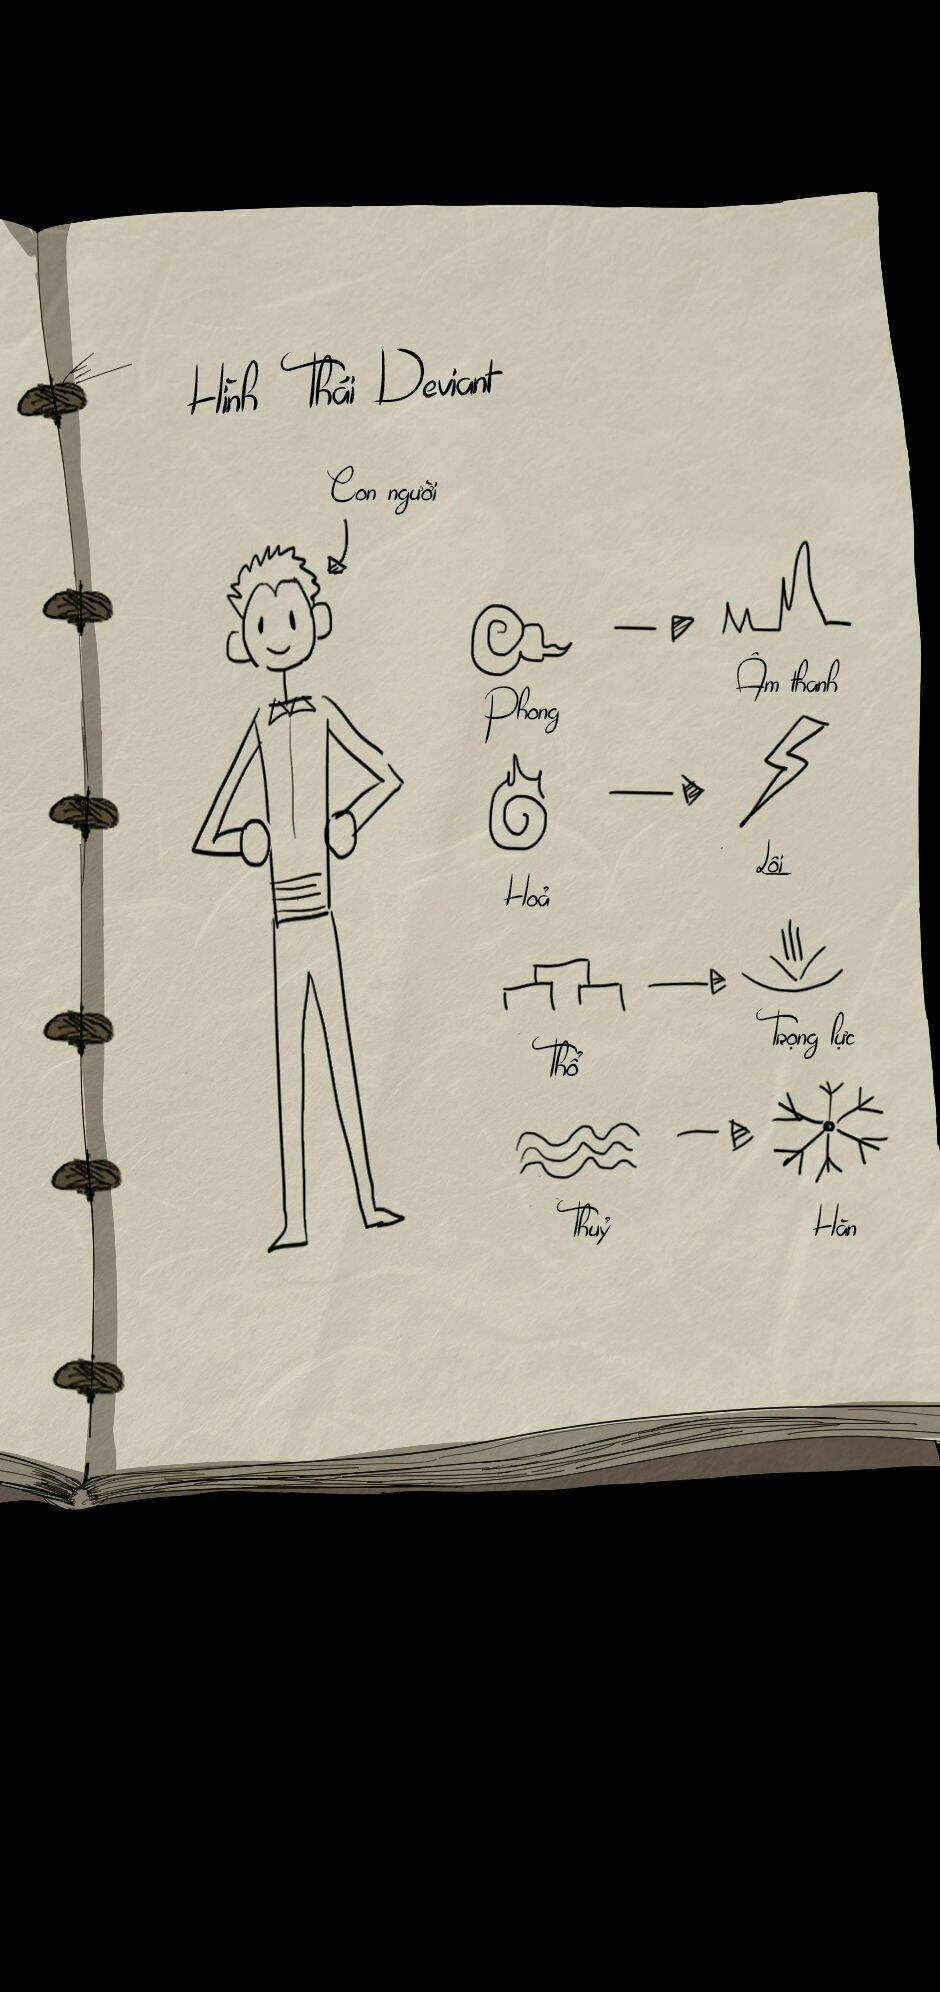 Hình Thái Deviant
Con người
Phong
Âm thanh
Hoả
Lôi
Thổ
Trọng lực
Thuỷ
Hàn